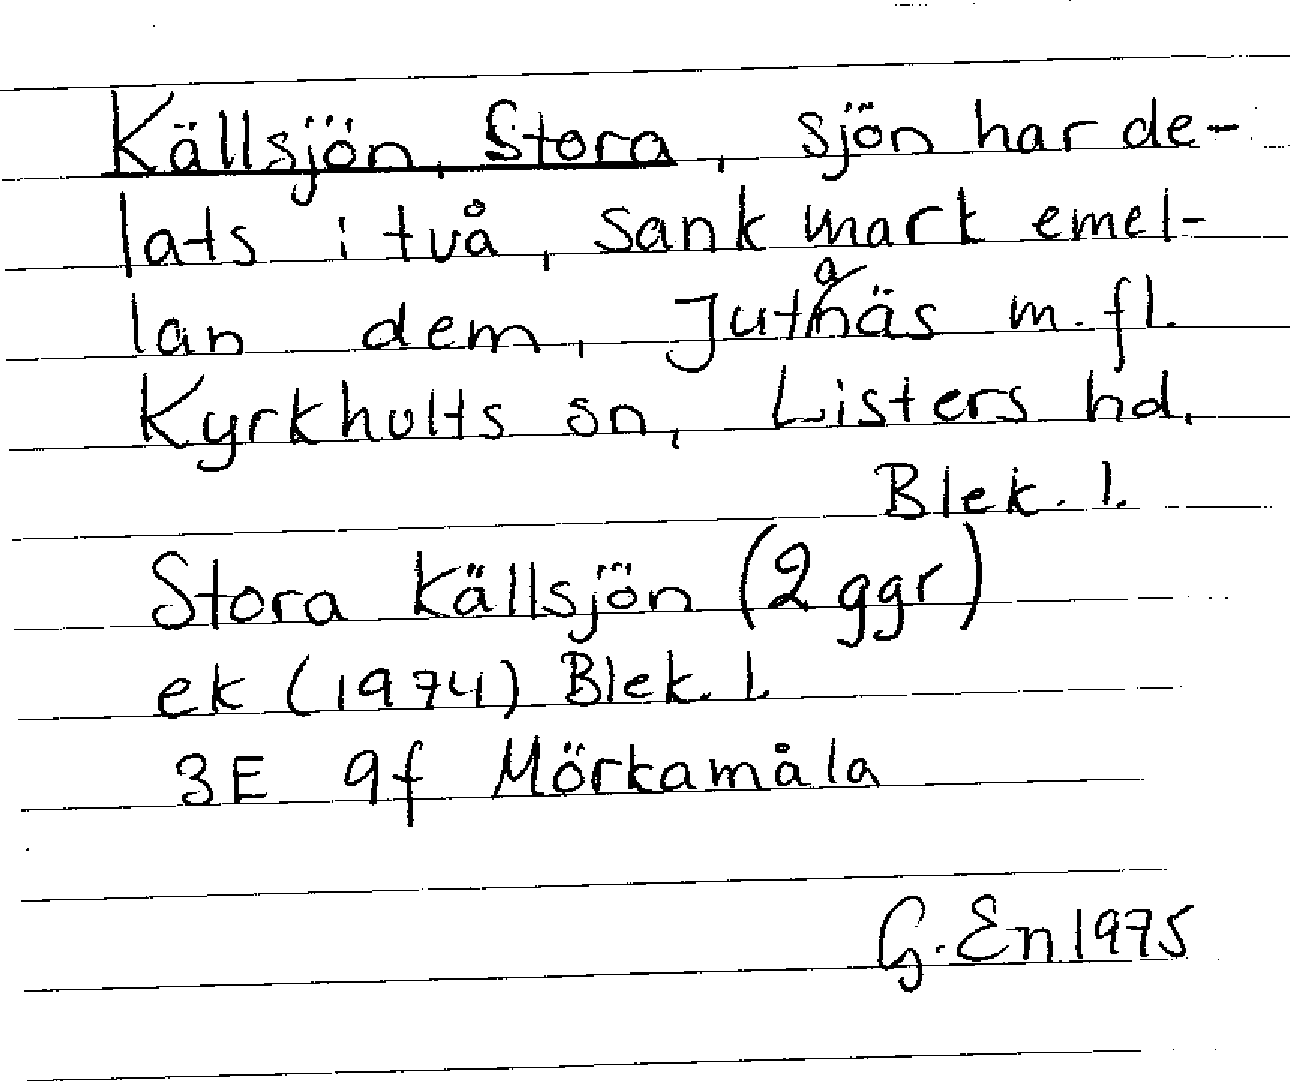 Källsjön, Stora, sjön har de-
lats i två, sank mark emel-
lan dem, Jutanäs m.fl.
Kyrkhults sn, Listers hd,
Blek. l.
Stora Källsjön (2 ggr)
ek (1974) Blek. l.
3E 9f Mörkamåla
G. En 1975